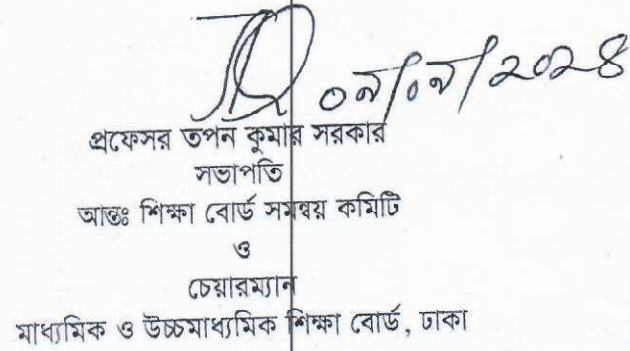 ০৯/০৯/২০২৪
প্রফেসর তপন কুমার সরকার
সভাপতি
আন্তঃ শিক্ষা বোর্ড সমন্বয় কমিটি
ও
চেয়ারম্যান
মাধ্যমিক ও উচ্চমাধ্যমিক শিক্ষা বোর্ড, ঢাকা